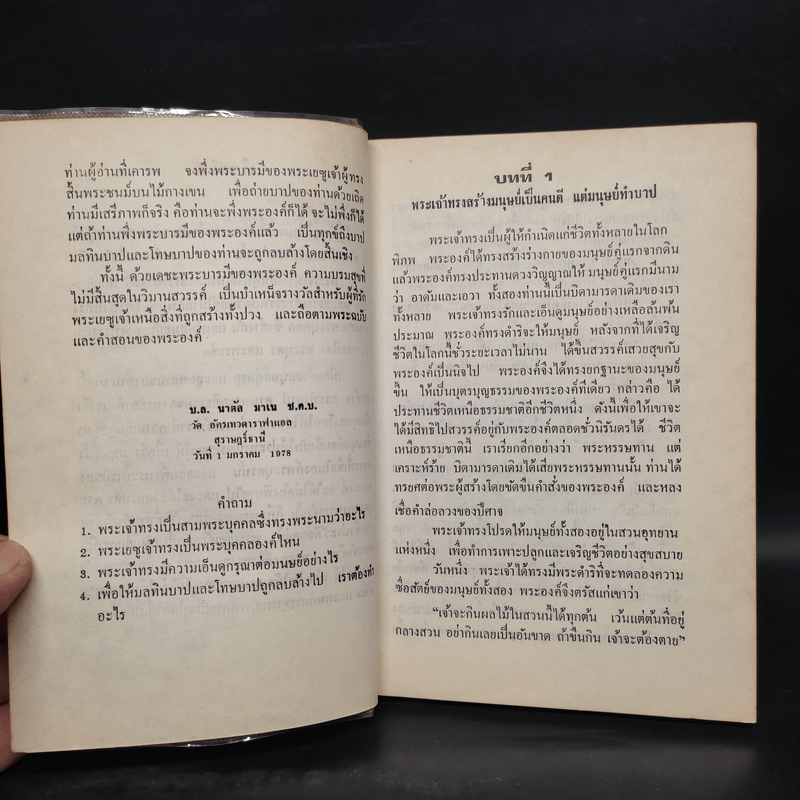 ท่านผู้อ่านที่เคารพ จงพึ่งพระบารมีของพระเยซูเจ้าผู้ทรง
สิ้นพระชนม์บนไม้กางเขน เพื่อถ่ายบาปของท่านด้วยเถิด
ท่านมีเสรีภาพก็จริง คือท่านจะพึ่งพระองค์ก็ได้ จะไม่พึ่งก็ได้
แต่ถ้าท่านพึ่งพระบารมีของพระองค์แล้ว เป็นทุกข์ถึงบาป
มลทินบาปและโทษบาปของท่านจะถูกลบล้างโดยสิ้นเชิง
ทั้งนี้ ด้วยเดชะพระบารมีของพระองค์ ความบรมสุขที่
ไม่มีสิ้นสุดในวิมานสวรรค์ เป็นบำเหน็จรางวัลสำหรับผู้ที่รัก
พระเยซูเจ้าเหนือสิ่งที่ถูกสร้างทั้งปวง และถือตามพระฉบับ
และคำสอนของพระองค์
บ.ล. นาตัล มาเน ซ.ค.บ.
วัด อัครเทวดาราฟาแอล
สุราษฎร์ธานี
วันที่ 1 มกราคม 1978
คำถาม
1. พระเจ้าทรงเป็นสามพระบุคคลซึ่งทรงพระนามว่าอะไร
2. พระเยซูเจ้าทรงเป็นพระบุคคลองค์ไหน
3. พระเจ้าทรงมีความเอ็นดูกรุณาต่อมนุษย์อย่างไร
4. เพื่อให้มลทินบาปและโทษบาปถูกลบล้างไป เราต้องทำ
อะไร
บทที่ 1
พระเจ้าทรงสร้างมนุษย์เป็นคนดี แต่มนุษย์ทำบาป
พระเจ้าทรงเป็นผู้ให้กำเนิดแก่ชีวิตทั้งหลายในโลก
พิภพ พระองค์ได้ทรงสร้างร่างกายของมนุษย์คู่แรกจากดิน
แล้วพระองค์ทรงประทานดวงวิญญาณให้ มนุษย์คู่แรกมีนาม
ว่า อาดัมและเอวา ทั้งสองท่านนี้เป็นบิดามารดาเดิมของเรา
ทั้งหลาย พระเจ้าทรงรักและเอ็นดูมนุษย์อย่างเหลือล้นพ้น
ประมาณ พระองค์ทรงดำริจะให้มนุษย์ หลังจากที่ได้เจริญ
ชีวิตในโลกนี้ชั่วระยะเวลาไม่นาน ได้ขึ้นสวรรค์เสวยสุขกับ
พระองค์เป็นนิจไป พระองค์จึงได้ทรงยกฐานะของมนุษย์
ขึ้น ให้เป็นบุตรบุญธรรมของพระองค์ทีเดียว กล่าวคือ ได้
ประทานชีวิตเหนือธรรมชาติอีกชีวิตหนึ่ง ดังนี้เพื่อให้เขาจะ
ได้มีสิทธิไปสวรรค์อยู่กับพระองค์ตลอดชั่วนิรันดรได้ ชีวิต
เหนือธรรมชาตินี้ เราเรียกอีกอย่างว่า พระหรรษทาน แต่
เคราะห์ร้าย บิดามารดาเดิมได้เสียพระหรรษทานนั้น ท่านได้
ทรยศต่อพระผู้สร้างโดยขัดขืนคำสั่งของพระองค์ และหลง
เชื่อคำล่อลวงของปีศาจ
พระเจ้าทรงโปรดให้มนุษย์ทั้งสองอยู่ในสวนอุทยาน
แห่งหนึ่ง เพื่อทำการเพาะปลูกและเจริญชีวิตอย่างสุขสบาย
วันหนึ่ง พระเจ้าได้ทรงมีพระดำริที่จะทดลองความ
ซื่อสัตย์ของมนุษย์ทั้งสอง พระองค์จึงตรัสแก่เขาว่า
“เจ้าจะกินผลไม้ในสวนนี้ได้ทุกต้น เว้นแต่ต้นที่อยู่
กลางสวน อย่ากินเลยเป็นอันขาด ถ้าขืนกิน เจ้าจะต้องตาย”